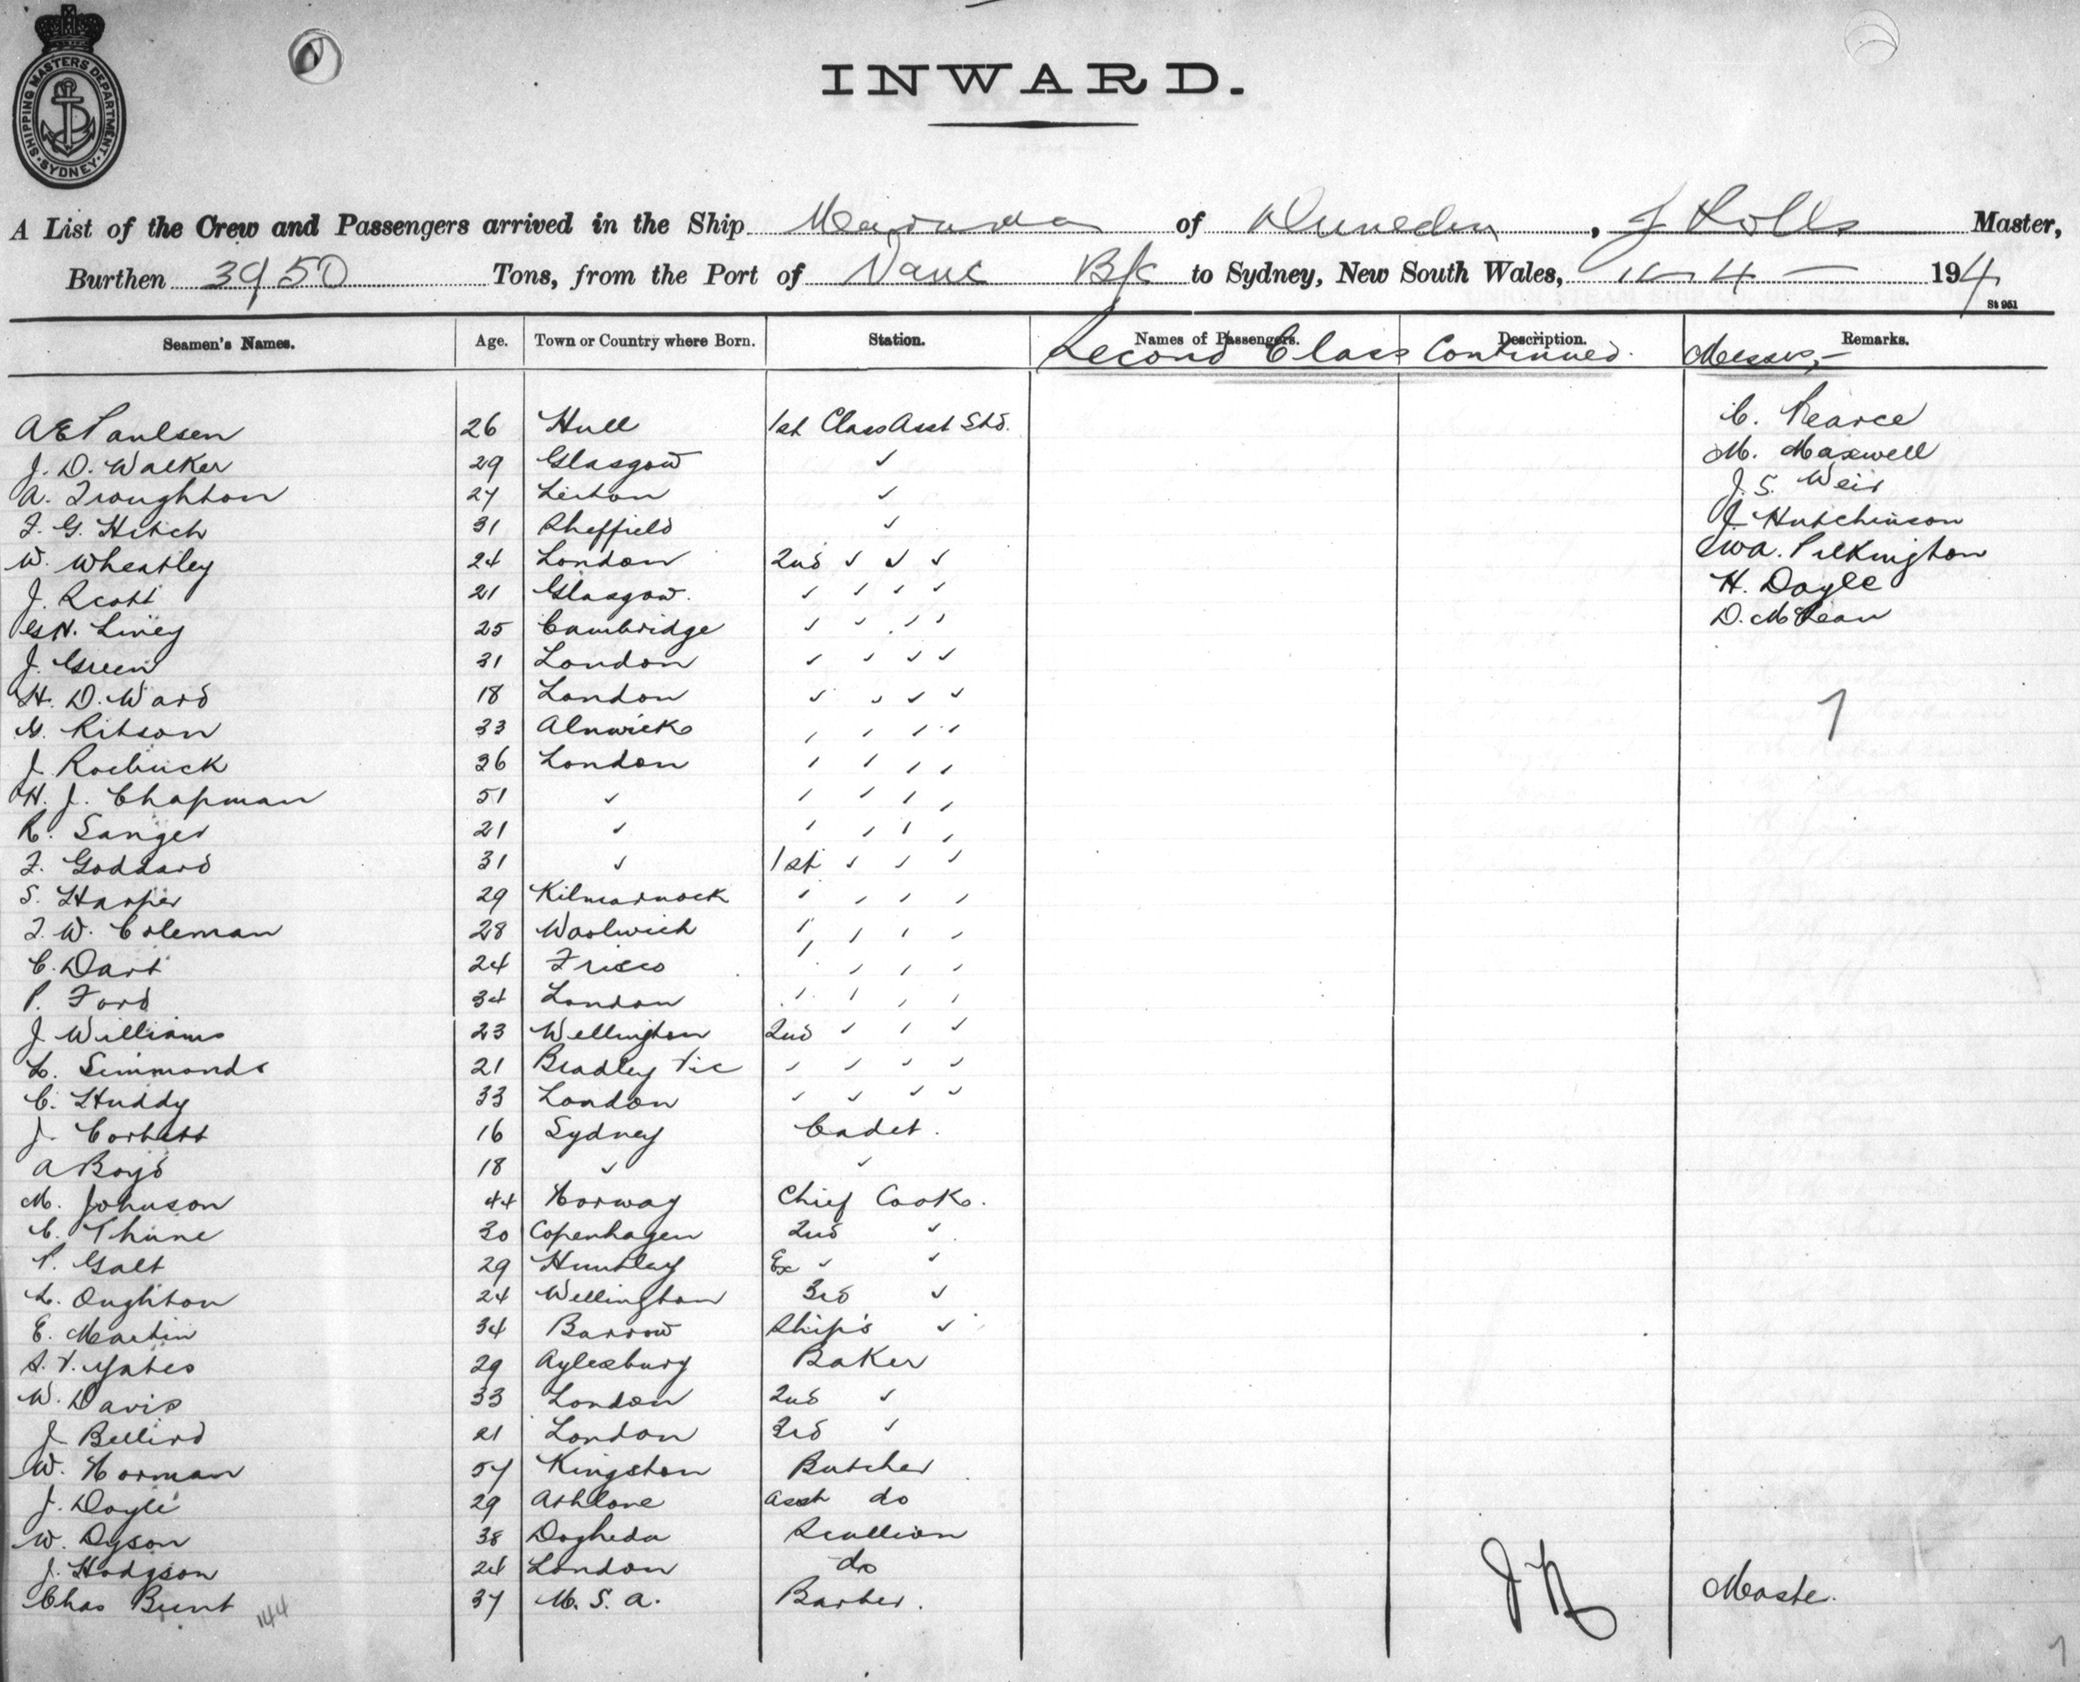 SHIPPING MASTERS DEPARTMENT. SYDNEY.
INWARD.
A List of the Crew and Passengers arrived in the Ship of Dunedin, J Rolls Master,
Burthen 3950 Tons, from the Port of Vanc B/C to Sydney, New South Wales, 4 — 194
St 951
Seamen's Names. Age. Town or Country where Born. Station. Names of Passengers. Description. Remarks.
Second Class Continued. Messrs,—
A E Paulsen 26 Hull 1st Class Asst Std. C. Pearce
J. D. Walker 29 Glasgow ✓ M. Maxwell
A. Troughton 27 ✓ J. S. Weir
F. G. Hitch 31 Sheffield ✓ J. Hutchinson
W. Wheatley 24 London 2nd ✓ ✓ ✓ W A. Pilkington
J. Scott 21 Glasgow. ✓ ✓ ✓ ✓ H. Doyle
G H. Liney 25 Cambridge ✓ ✓ ✓ ✓ D. McLean
J. Green 31 London ✓ ✓ ✓ ✓
H. D. Ward 18 London ✓ ✓ ✓ ✓
G. Ritson 33 Alnwick ✓ ✓ ✓ ✓ 7
J. Roebuck 36 London ✓ ✓ ✓ ✓
H. J. Chapman 51 ✓ ✓ ✓ ✓ ✓
R. Sanger 21 ✓ ✓ ✓ ✓ ✓
F. Goddard 31 ✓ 1st ✓ ✓ ✓
S. Harper 29 Kilmarnock ✓ ✓ ✓ ✓
F. W. Coleman 28 Woolwich ✓ ✓ ✓ ✓
C. Dart 24 Frisco ✓ ✓ ✓ ✓
P. Ford 34 London ✓ ✓ ✓ ✓
J Williams 23 Wellington 2nd ✓ ✓ ✓
L. Simmonds 21 Bradley Vic ✓ ✓ ✓ ✓
C. Huddy 33 London ✓ ✓ ✓ ✓
J. Corbett 16 Sydney Cadet.
A Boyd 18 ✓ ✓
M. Johnson 44 Norway Chief Cook.
C. Thune 30 Copenhagen 2nd ✓
P. Galt 29 Huntley Ex ✓ ✓
L. Oughton 24 Wellington 3rd ✓
E. Martin 34 Barrow Ship's ✓
S. V. Yates 29 Aylesbury Baker
W. Davis 33 London 2nd ✓
J 21 London 3rd ✓
W. Norman 57 Kingston Butcher
J. Doyle 29 Athlone asst do
W. Dyson 38 Dogheda Scullion
J. Hodgson 24 London do
Chas Bunt 144 37 S. A. Barber. JR Maste.
7